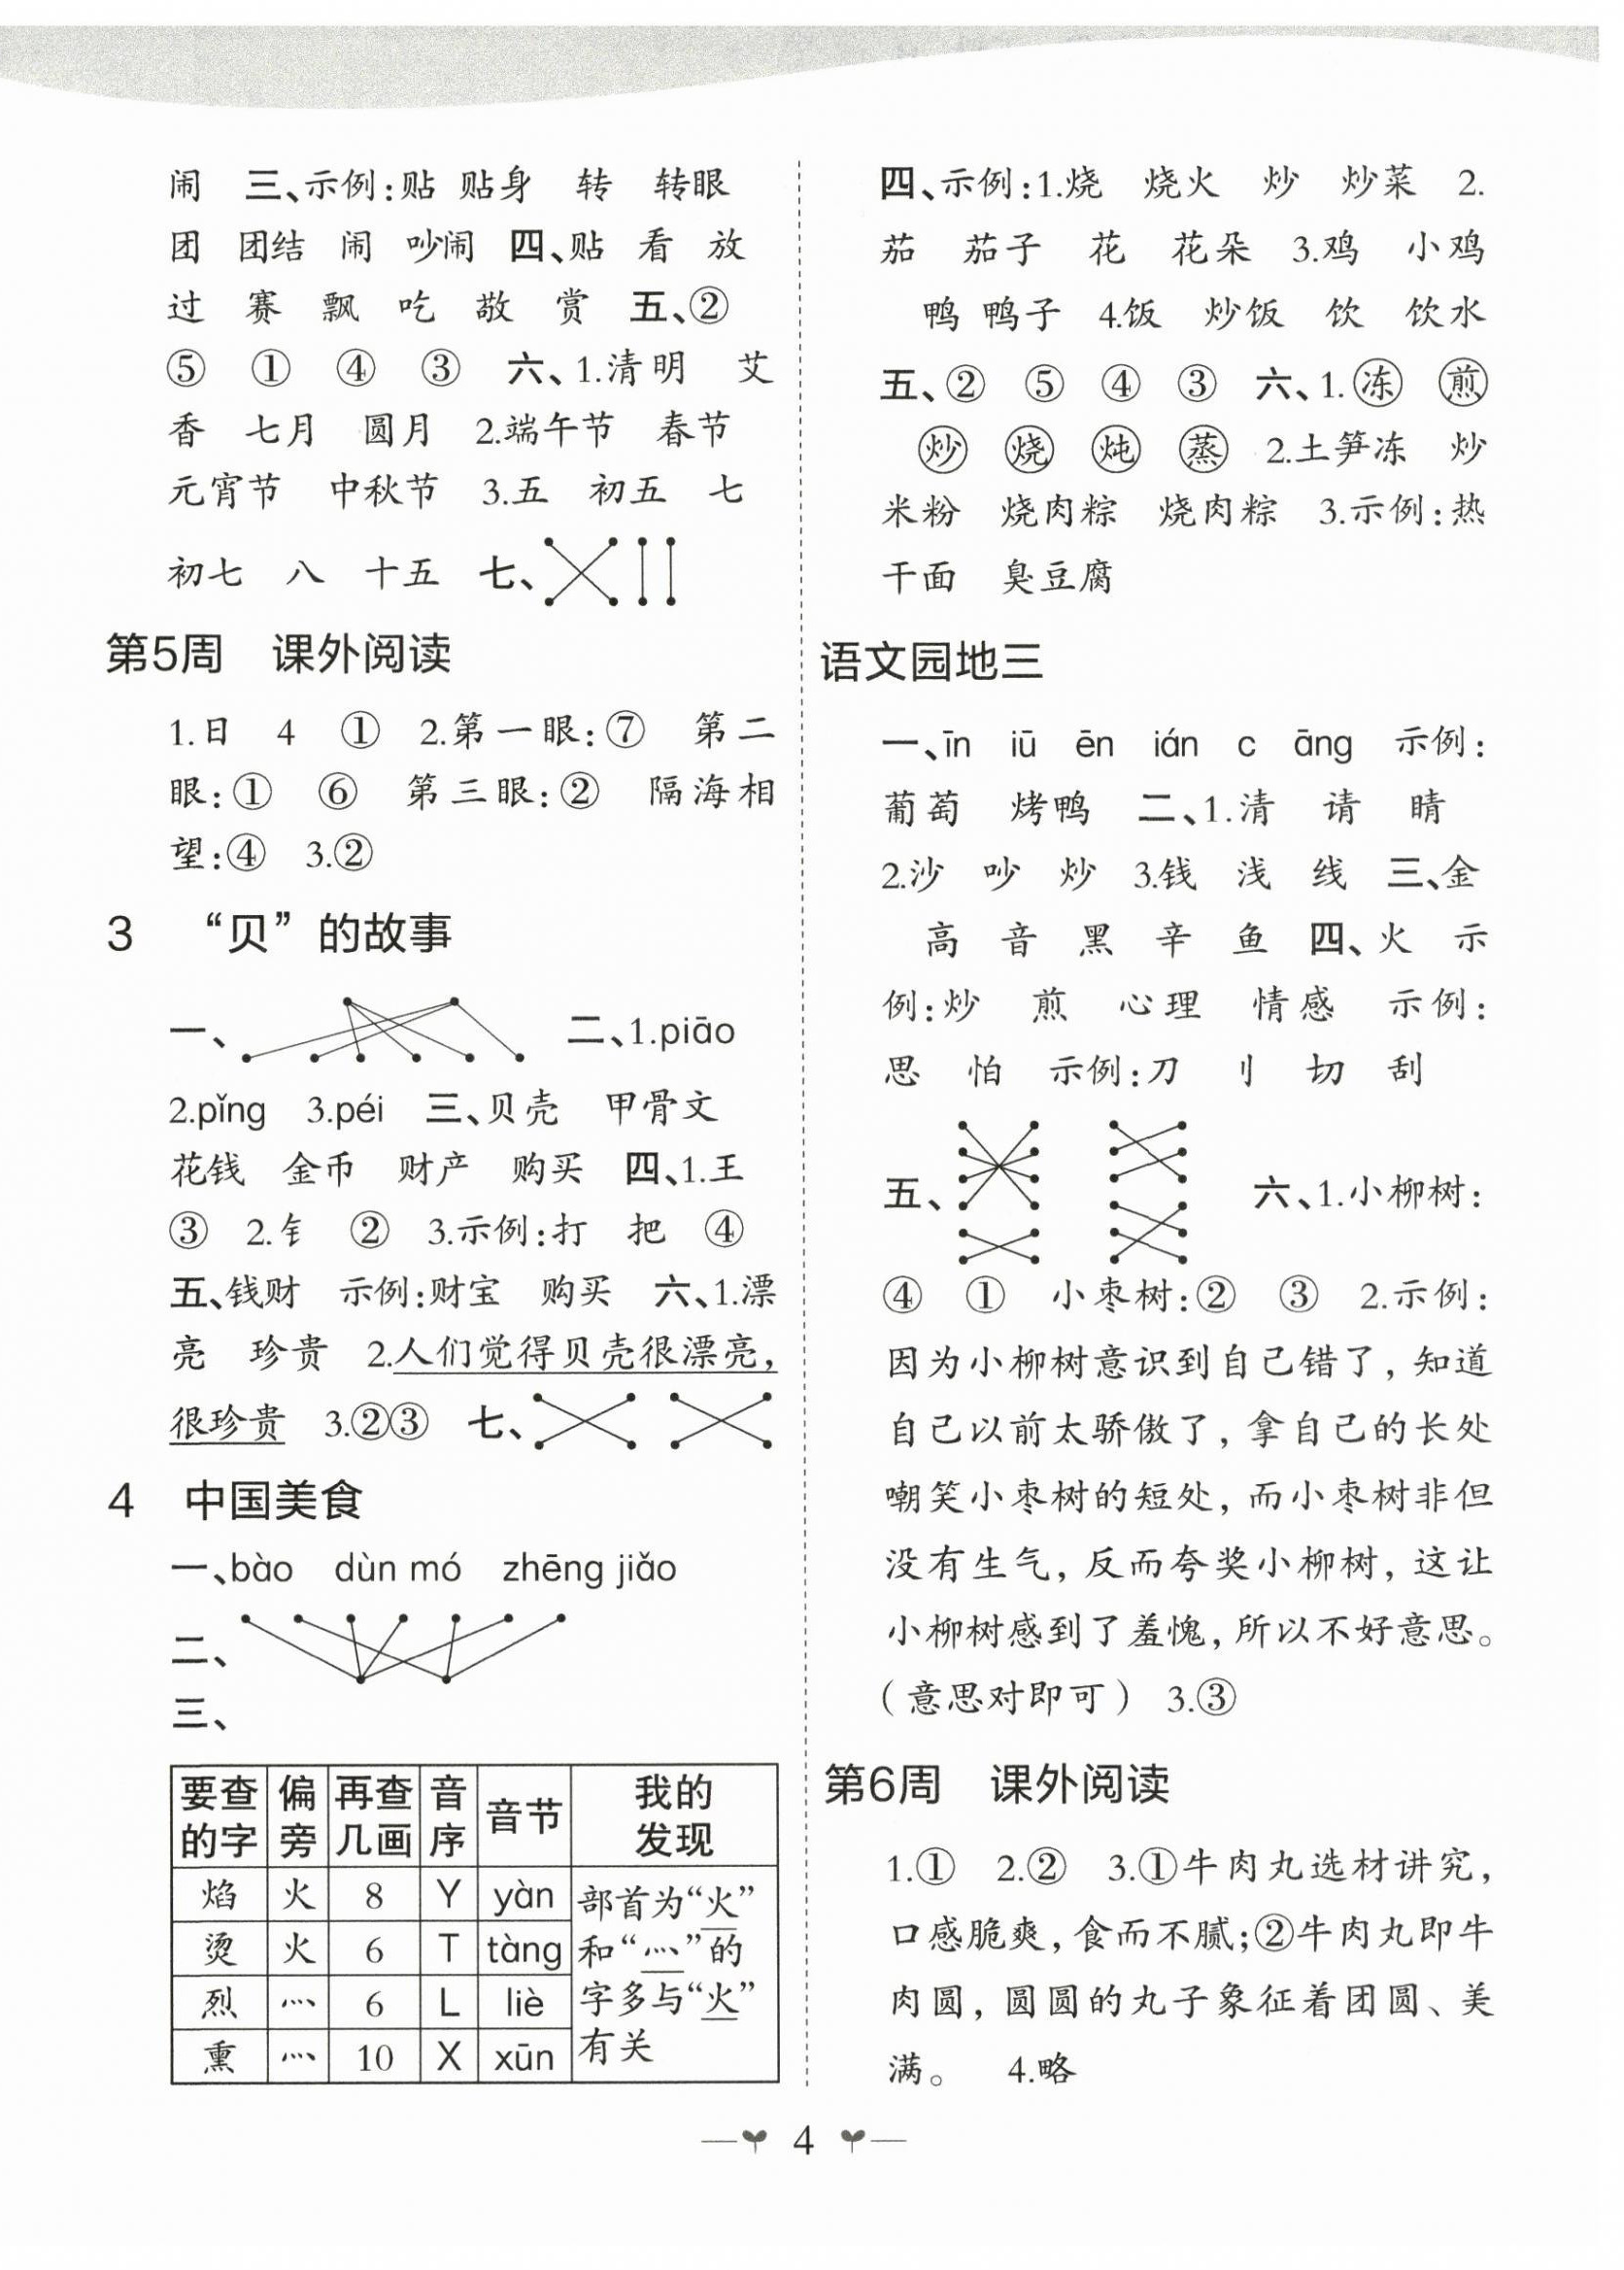 闹 三、示例:贴 贴身 转 转眼
团 团结 闹 吵闹 四、贴 看 放
过 赛 飘 吃 敬 赏 五、②
⑤ ① ④ ③ 六、1.清明 艾
香 七月 圆月 2.端午节 春节
元宵节 中秋节 3.五 初五 七
初七 八 十五 七、
第5周 课外阅读
1.日 4 ① 2.第一眼:⑦ 第二
眼:① ⑥ 第三眼:② 隔海相
望:④ 3.②
3 “贝”的故事
一、 二、1.piāo
2.pǐng 3.péi 三、贝壳 甲骨文
花钱 金币 财产 购买 四、1.王
③ 2.钅 ② 3.示例:打 把 ④
五、钱财 示例:财宝 购买 六、1.漂
亮 珍贵 2.人们觉得贝壳很漂亮,
很珍贵 3.②③ 七、
4 中国美食
一、bào dùn mó zhēng jiǎo
二、
三、
要查的字 偏旁 再查几画 音序 音节 我的发现
焰 火 8 Y yàn 部首为“火”
烫 火 6 T tàng 和“灬”的
烈 灬 6 L liè 字多与“火”
熏 灬 10 X xūn 有关
四、示例:1.烧 烧火 炒 炒菜 2.
茄 茄子 花 花朵 3.鸡 小鸡
鸭 鸭子 4.饭 炒饭 饮 饮水
五、② ⑤ ④ ③ 六、1.冻 煎
炒 烧 炖 蒸 2.土笋冻 炒
米粉 烧肉粽 烧肉粽 3.示例:热
干面 臭豆腐
语文园地三
一、īn iū ēn ián c āng 示例:
葡萄 烤鸭 二、1.清 请 晴
2.沙 吵 炒 3.钱 浅 线 三、金
高 音 黑 辛 鱼 四、火 示
例:炒 煎 心理 情感 示例:
思 怕 示例:刀 刂 切 刮
五、 六、1.小柳树:
④ ① 小枣树:② ③ 2.示例:
因为小柳树意识到自己错了,知道
自己以前太骄傲了,拿自己的长处
嘲笑小枣树的短处,而小枣树非但
没有生气,反而夸奖小柳树,这让
小柳树感到了羞愧,所以不好意思。
(意思对即可) 3.③
第6周 课外阅读
1.① 2.② 3.①牛肉丸选材讲究,
口感脆爽,食而不腻;②牛肉丸即牛
肉圆,圆圆的丸子象征着团圆、美
满。 4.略
4